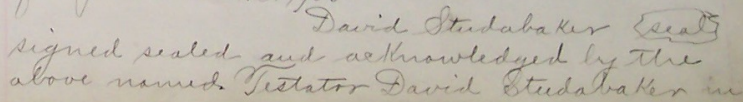 David Studabaker {seal}
signed sealed and acknowledged by the
above named Testator David Studabaker in